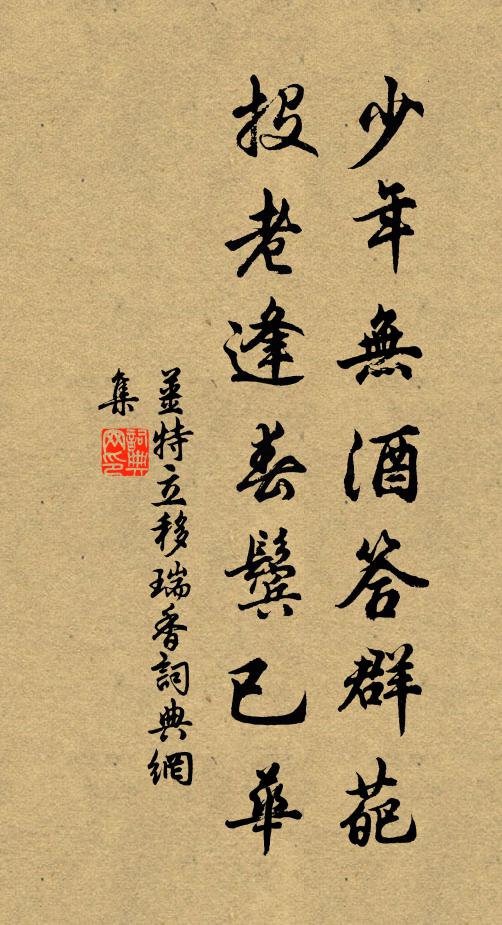 少年無酒答群葩
投老逢春鬢已華
薑特立移瑞香詞典網
集
詞典
网印